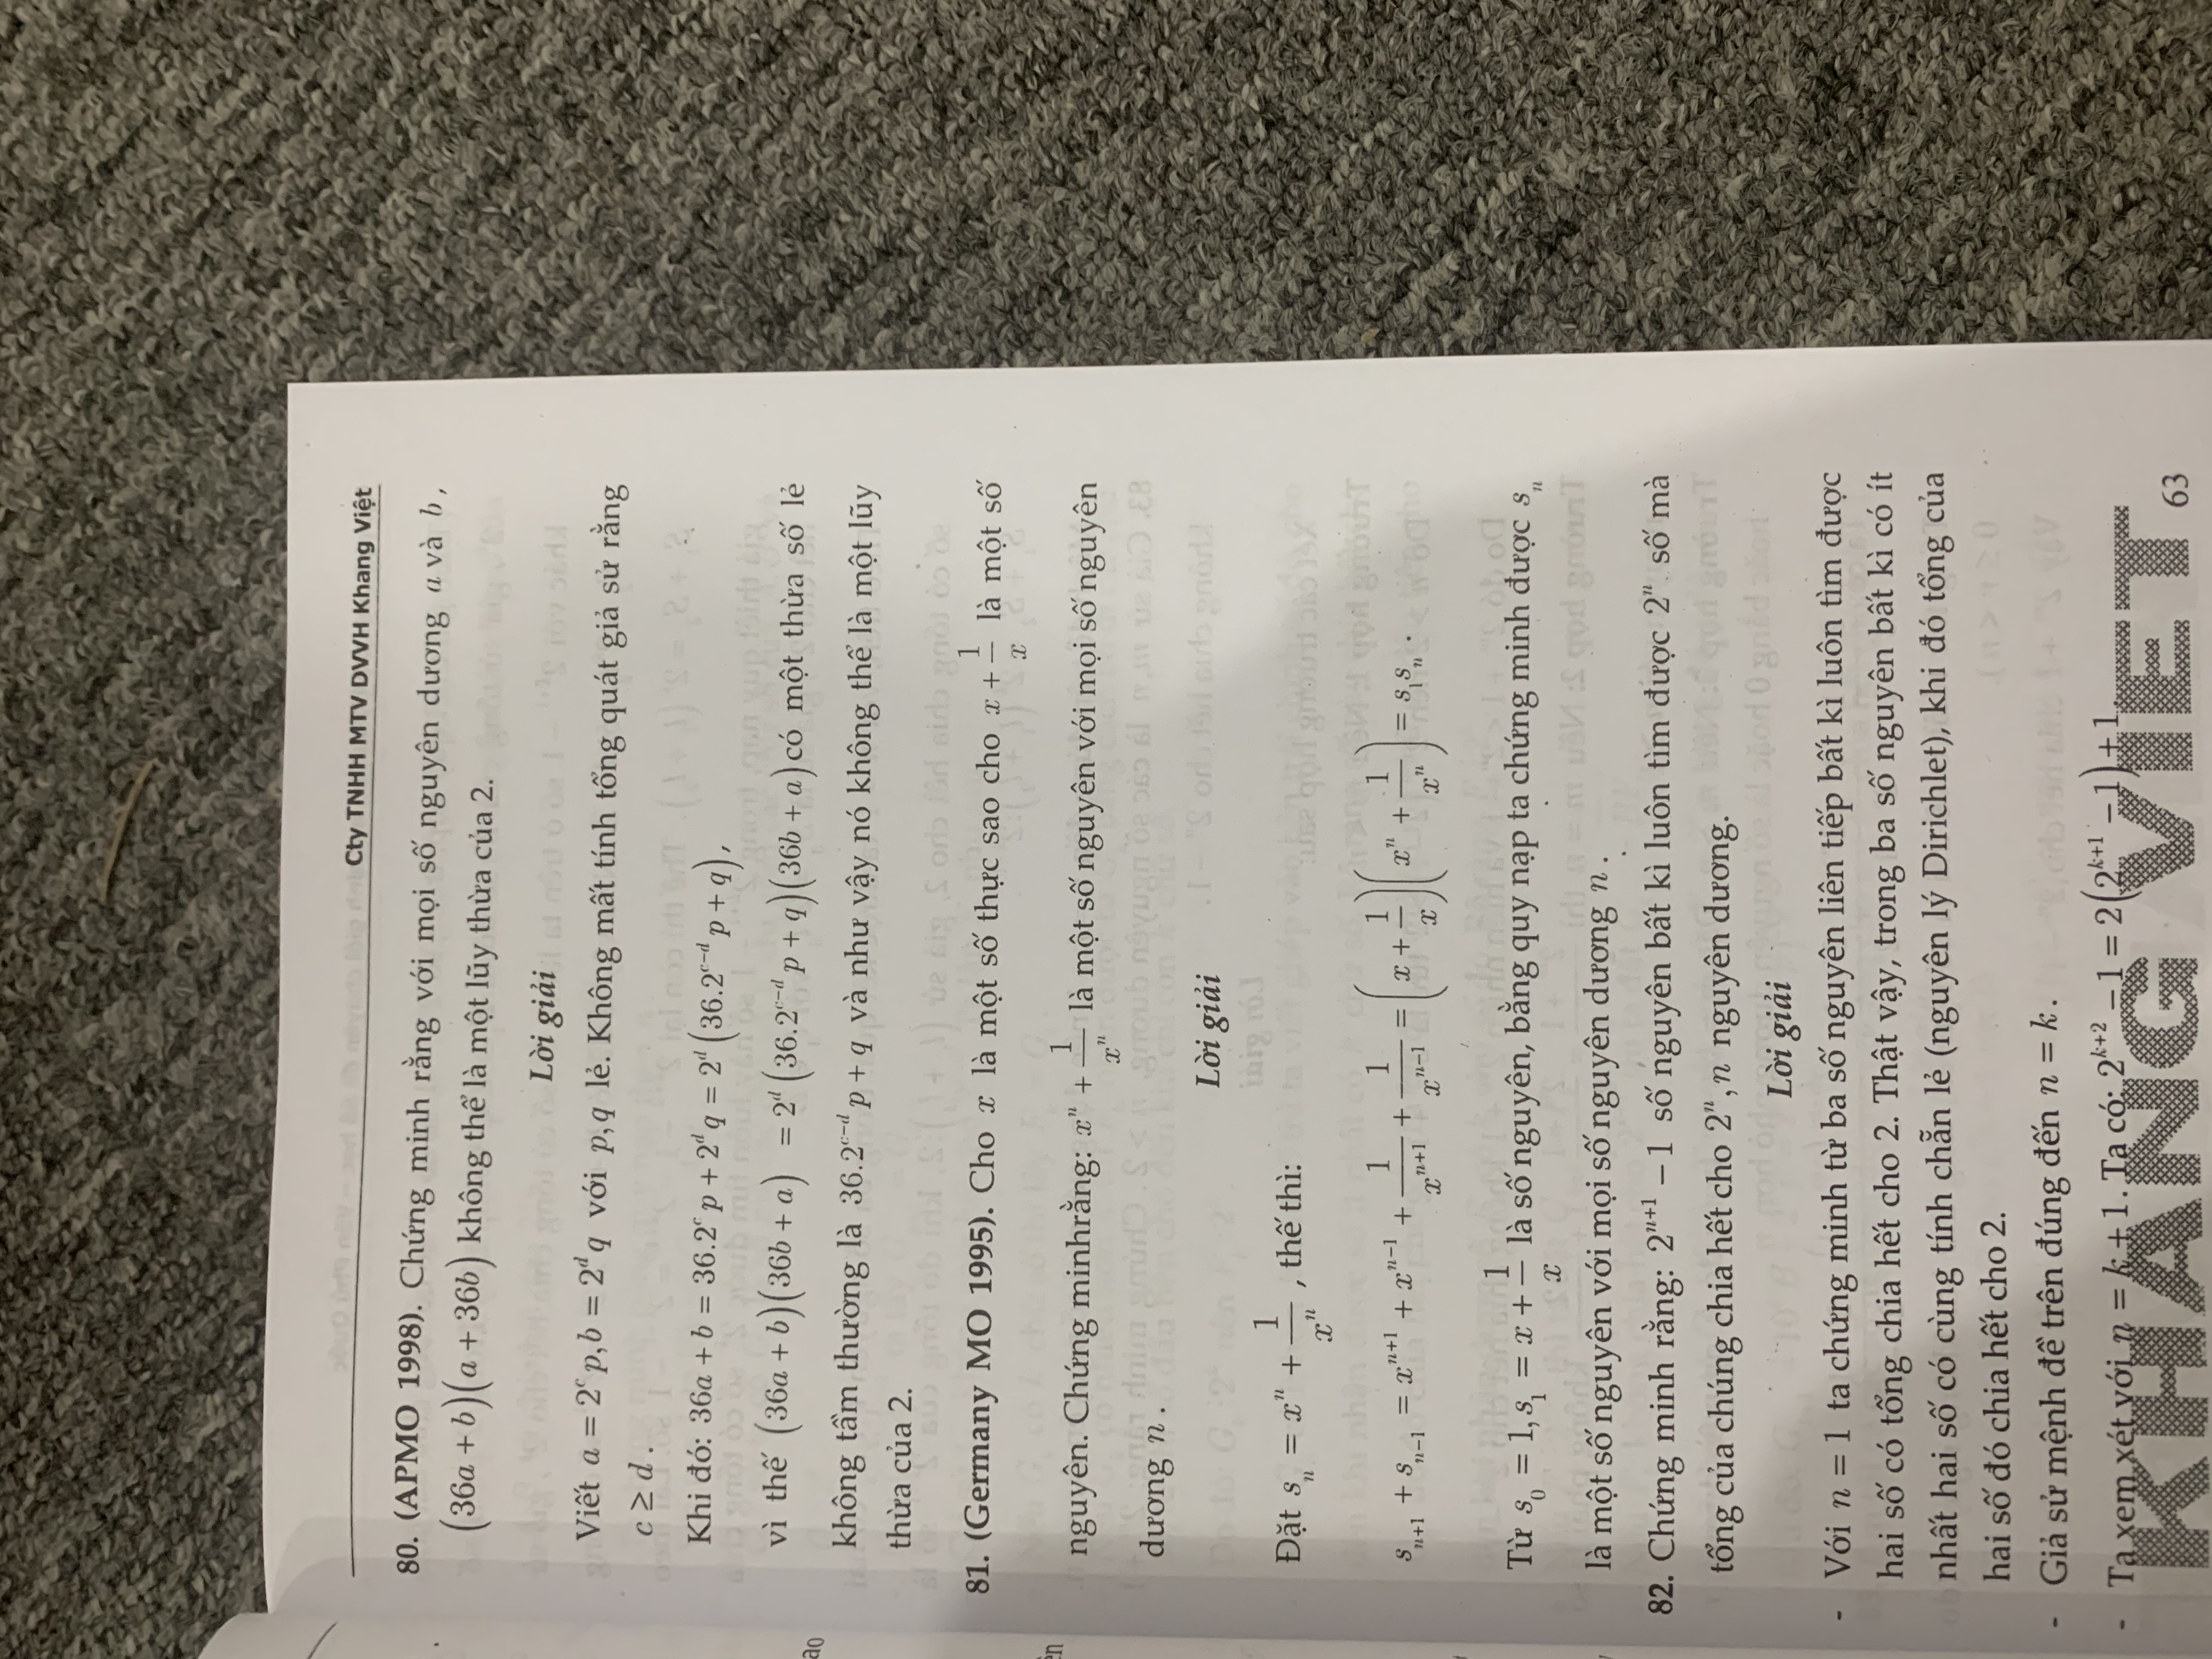 Cty TNHH MTV DVVH Khang Việt
80. (APMO 1998). Chứng minh rằng với mọi số nguyên dương a và b,
(36a + b)(a + 36b) không thể là một lũy thừa của 2.
Lời giải
Viết a = 2^c p, b = 2^d q với p, q lẻ. Không mất tính tổng quát giả sử rằng
c ≥ d.
Khi đó: 36a + b = 36.2^c p + 2^d q = 2^d (36.2^{c-d} p + q),
vì thế (36a + b)(36b + a) = 2^d (36.2^{c-d} p + q)(36b + a) có một thừa số lẻ
không tầm thường là 36.2^{c-d} p + q và như vậy nó không thể là một lũy
thừa của 2.
81. (Germany MO 1995). Cho x là một số thực sao cho x + 1/x là một số
nguyên. Chứng minhrằng: x^n + 1/x^n là một số nguyên với mọi số nguyên
dương n.
Lời giải
Đặt s_n = x^n + 1/x^n, thế thì:
s_{n+1} + s_{n-1} = x^{n+1} + x^{n-1} + 1/x^{n+1} + 1/x^{n-1} = (x + 1/x)(x^n + 1/x^n) = s_1 s_n.
Từ s_0 = 1, s_1 = x + 1/x là số nguyên, bằng quy nạp ta chứng minh được s_n
là một số nguyên với mọi số nguyên dương n.
82. Chứng minh rằng: 2^{n+1} − 1 số nguyên bất kì luôn tìm được 2^n số mà
tổng của chúng chia hết cho 2^n, n nguyên dương.
Lời giải
- Với n = 1 ta chứng minh từ ba số nguyên liên tiếp bất kì luôn tìm được
hai số có tổng chia hết cho 2. Thật vậy, trong ba số nguyên bất kì có ít
nhất hai số có cùng tính chẵn lẻ (nguyên lý Dirichlet), khi đó tổng của
hai số đó chia hết cho 2.
- Giả sử mệnh đề trên đúng đến n = k.
- Ta xem xét với n = k + 1. Ta có: 2^{k+2} − 1 = 2(2^{k+1} − 1) + 1
KHANG VIET
63